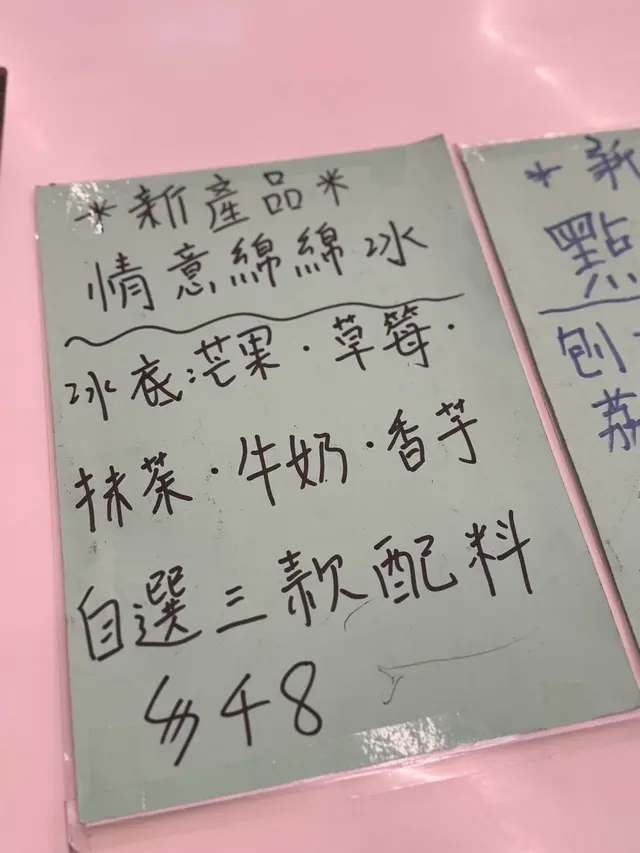 *新產品*
情意綿綿冰
冰底:芒果·草莓·
抹茶·牛奶·香芋
自選三款配料
$48
*新
點
刨
荔